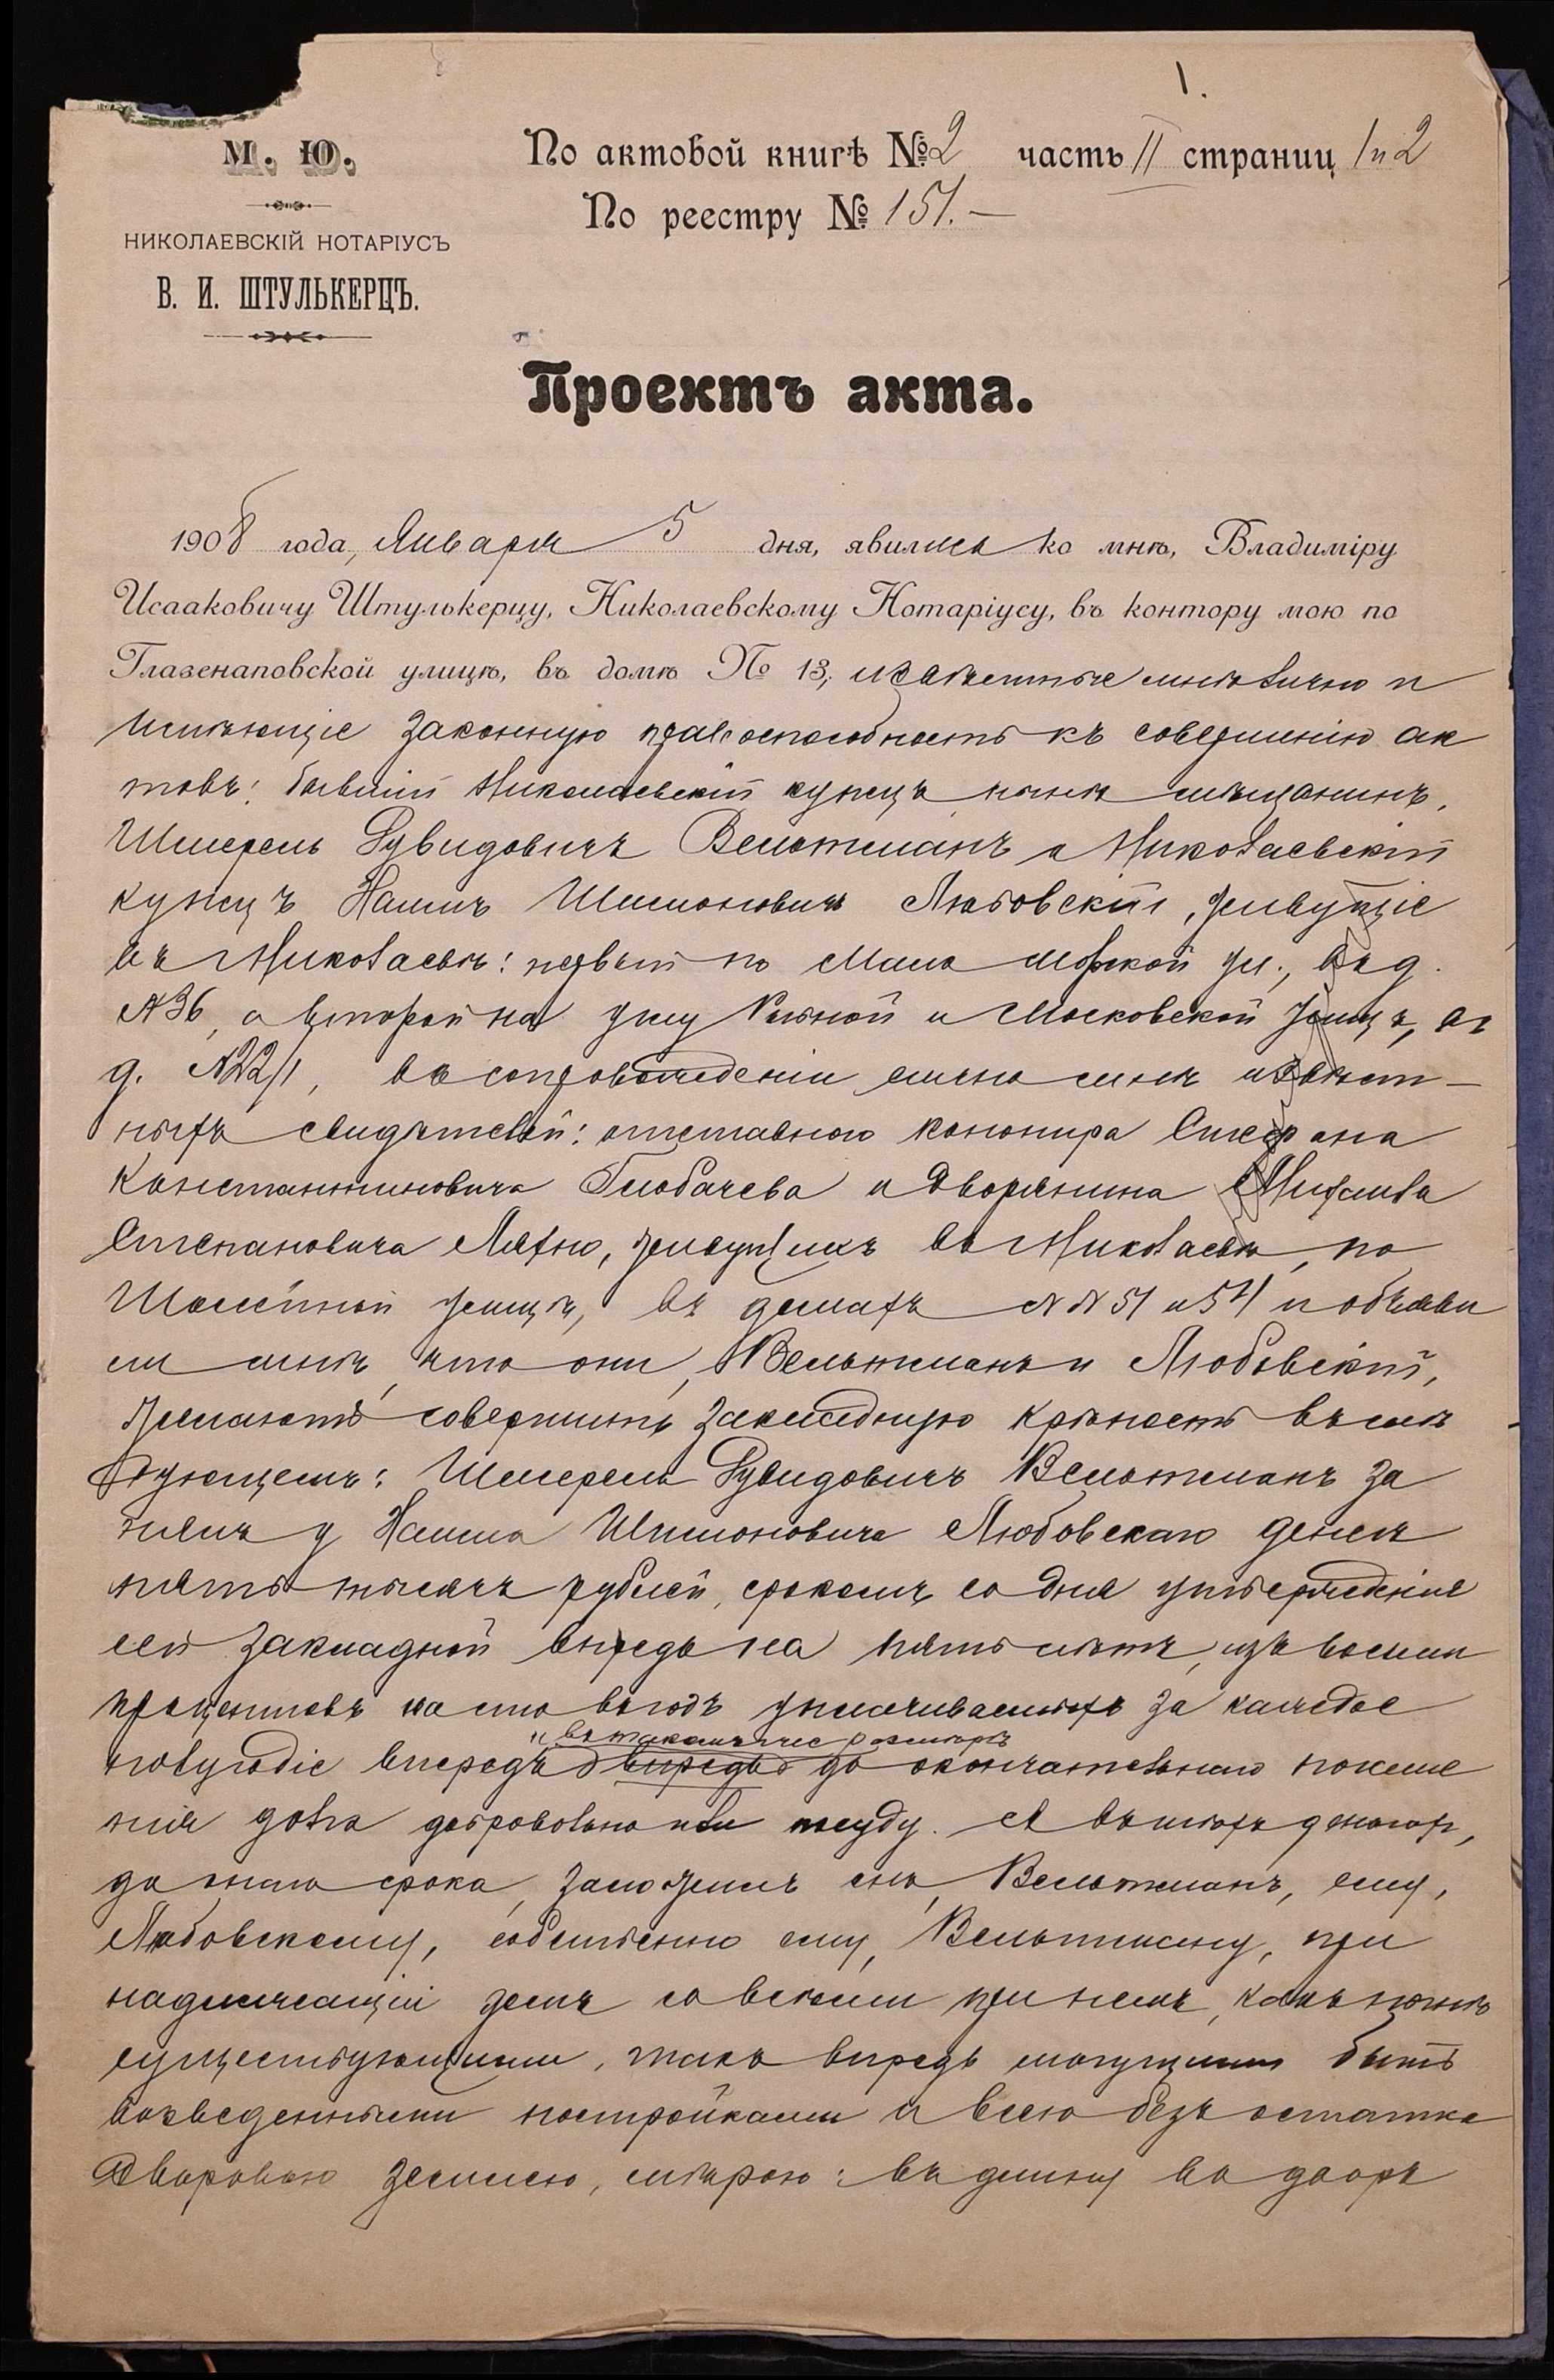 1.
М. Ю.
По актовой книгѣ № 2 часть II страниц 1 и 2
По реестру № 151.—
НИКОЛАЕВСКІЙ НОТАРІУСЪ
В. И. ШТУЛЬКЕРЦЪ.
Проектъ акта.
1908 года, Января 5 дня, явились ко мнѣ, Владиміру
Исааковичу Штулькерцу, Николаевскому Нотаріусу, въ контору мою по
Глазенаповской улицѣ, въ домѣ № 13, извѣстные мнѣ лично и
имѣющіе законную правоспособность къ совершенію ак
товъ: бывшій Николаевскій купецъ нынѣ мѣщанинъ,
Шмерель Рувидовичъ Вельтманъ и Николаевскій
купецъ Наимъ Шимоновичъ Любовскій, живущіе
въ Николаевѣ: первый по Мало Морской ул., въ д.
№ 36, а второй на углу и Московской улицъ, въ
д. № 22/1, въ сопровожденіи лично мнѣ извѣст-
ныхъ свидѣтелей: отставного канонира Стефана
Константиновича Глобачева и дворянина Михаила
Степановича Ляхно, живущихъ въ Николаевѣ, по
улицѣ, въ домахъ №№ 51 и 54 и объяви
ли мнѣ, что они, Вельтманъ и Любовскій,
желаютъ совершить закладную крѣпость въ слѣ
дующемъ: Шмерель Рувидовичъ Вельтманъ за
нялъ у Наима Шимоновича Любовскаго денегъ
пять тысячъ рублей, срокомъ со дня утвержденія
сей закладной впредь на пять лѣтъ, изъ восьми
процентовъ на сто въ годъ уплачиваемыхъ за каждое
полугодіе впередъ и въ такомъ же размѣрѣ впредь до окончательнаго погаше
нія долга добровольно или по суду. А въ тѣхъ деньгах,
до того срока, заложилъ онъ, Вельтманъ, ему,
Любовскому, собственно ему, Вельтману, при
надлежащій домъ со всѣми при немъ, какъ нынѣ
существующими, такъ впредь могущими быть
возведенными постройками и всею безъ остатка
дворовою землею, мѣрою: въ длину во дворъ